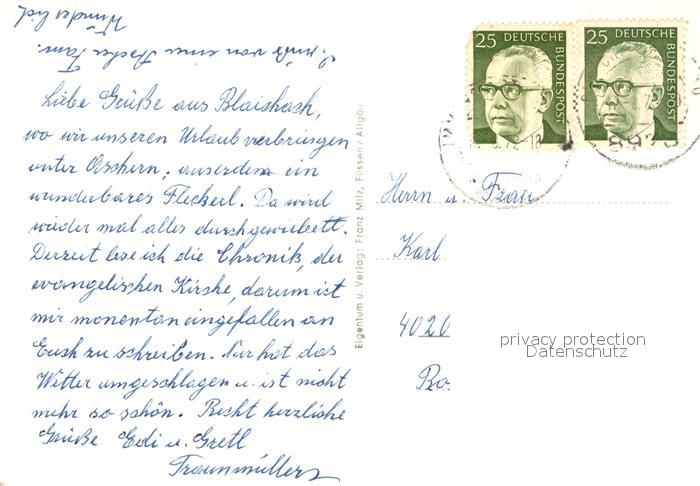 Liebe Grüße aus Blaichach,
wo wir unseren Urlaub verbringen
unter Aschern, auserdem ein
wunderbares Fleckerl. Da wird
wieder mal alles durchgewirbelt.
Derzeit lese ich die Chronik, der
evangelischen Kirche, darum ist
mir momentan eingefallen an
Euch zu schreiben. Nur hat das
Wetter umgeschlagen u. ist nicht
mehr so schön. Recht herzliche
Grüße Edi u. Gretl
Traunmüllers
von einer Ascher Fam.
Wunderlich
Eigentum u. Verlag: Franz Milz, Füssen/Allgäu
25 DEUTSCHE BUNDESPOST
25 DEUTSCHE BUNDESPOST
Herrn u. Frau
Karl
4020
privacy protection
Datenschutz